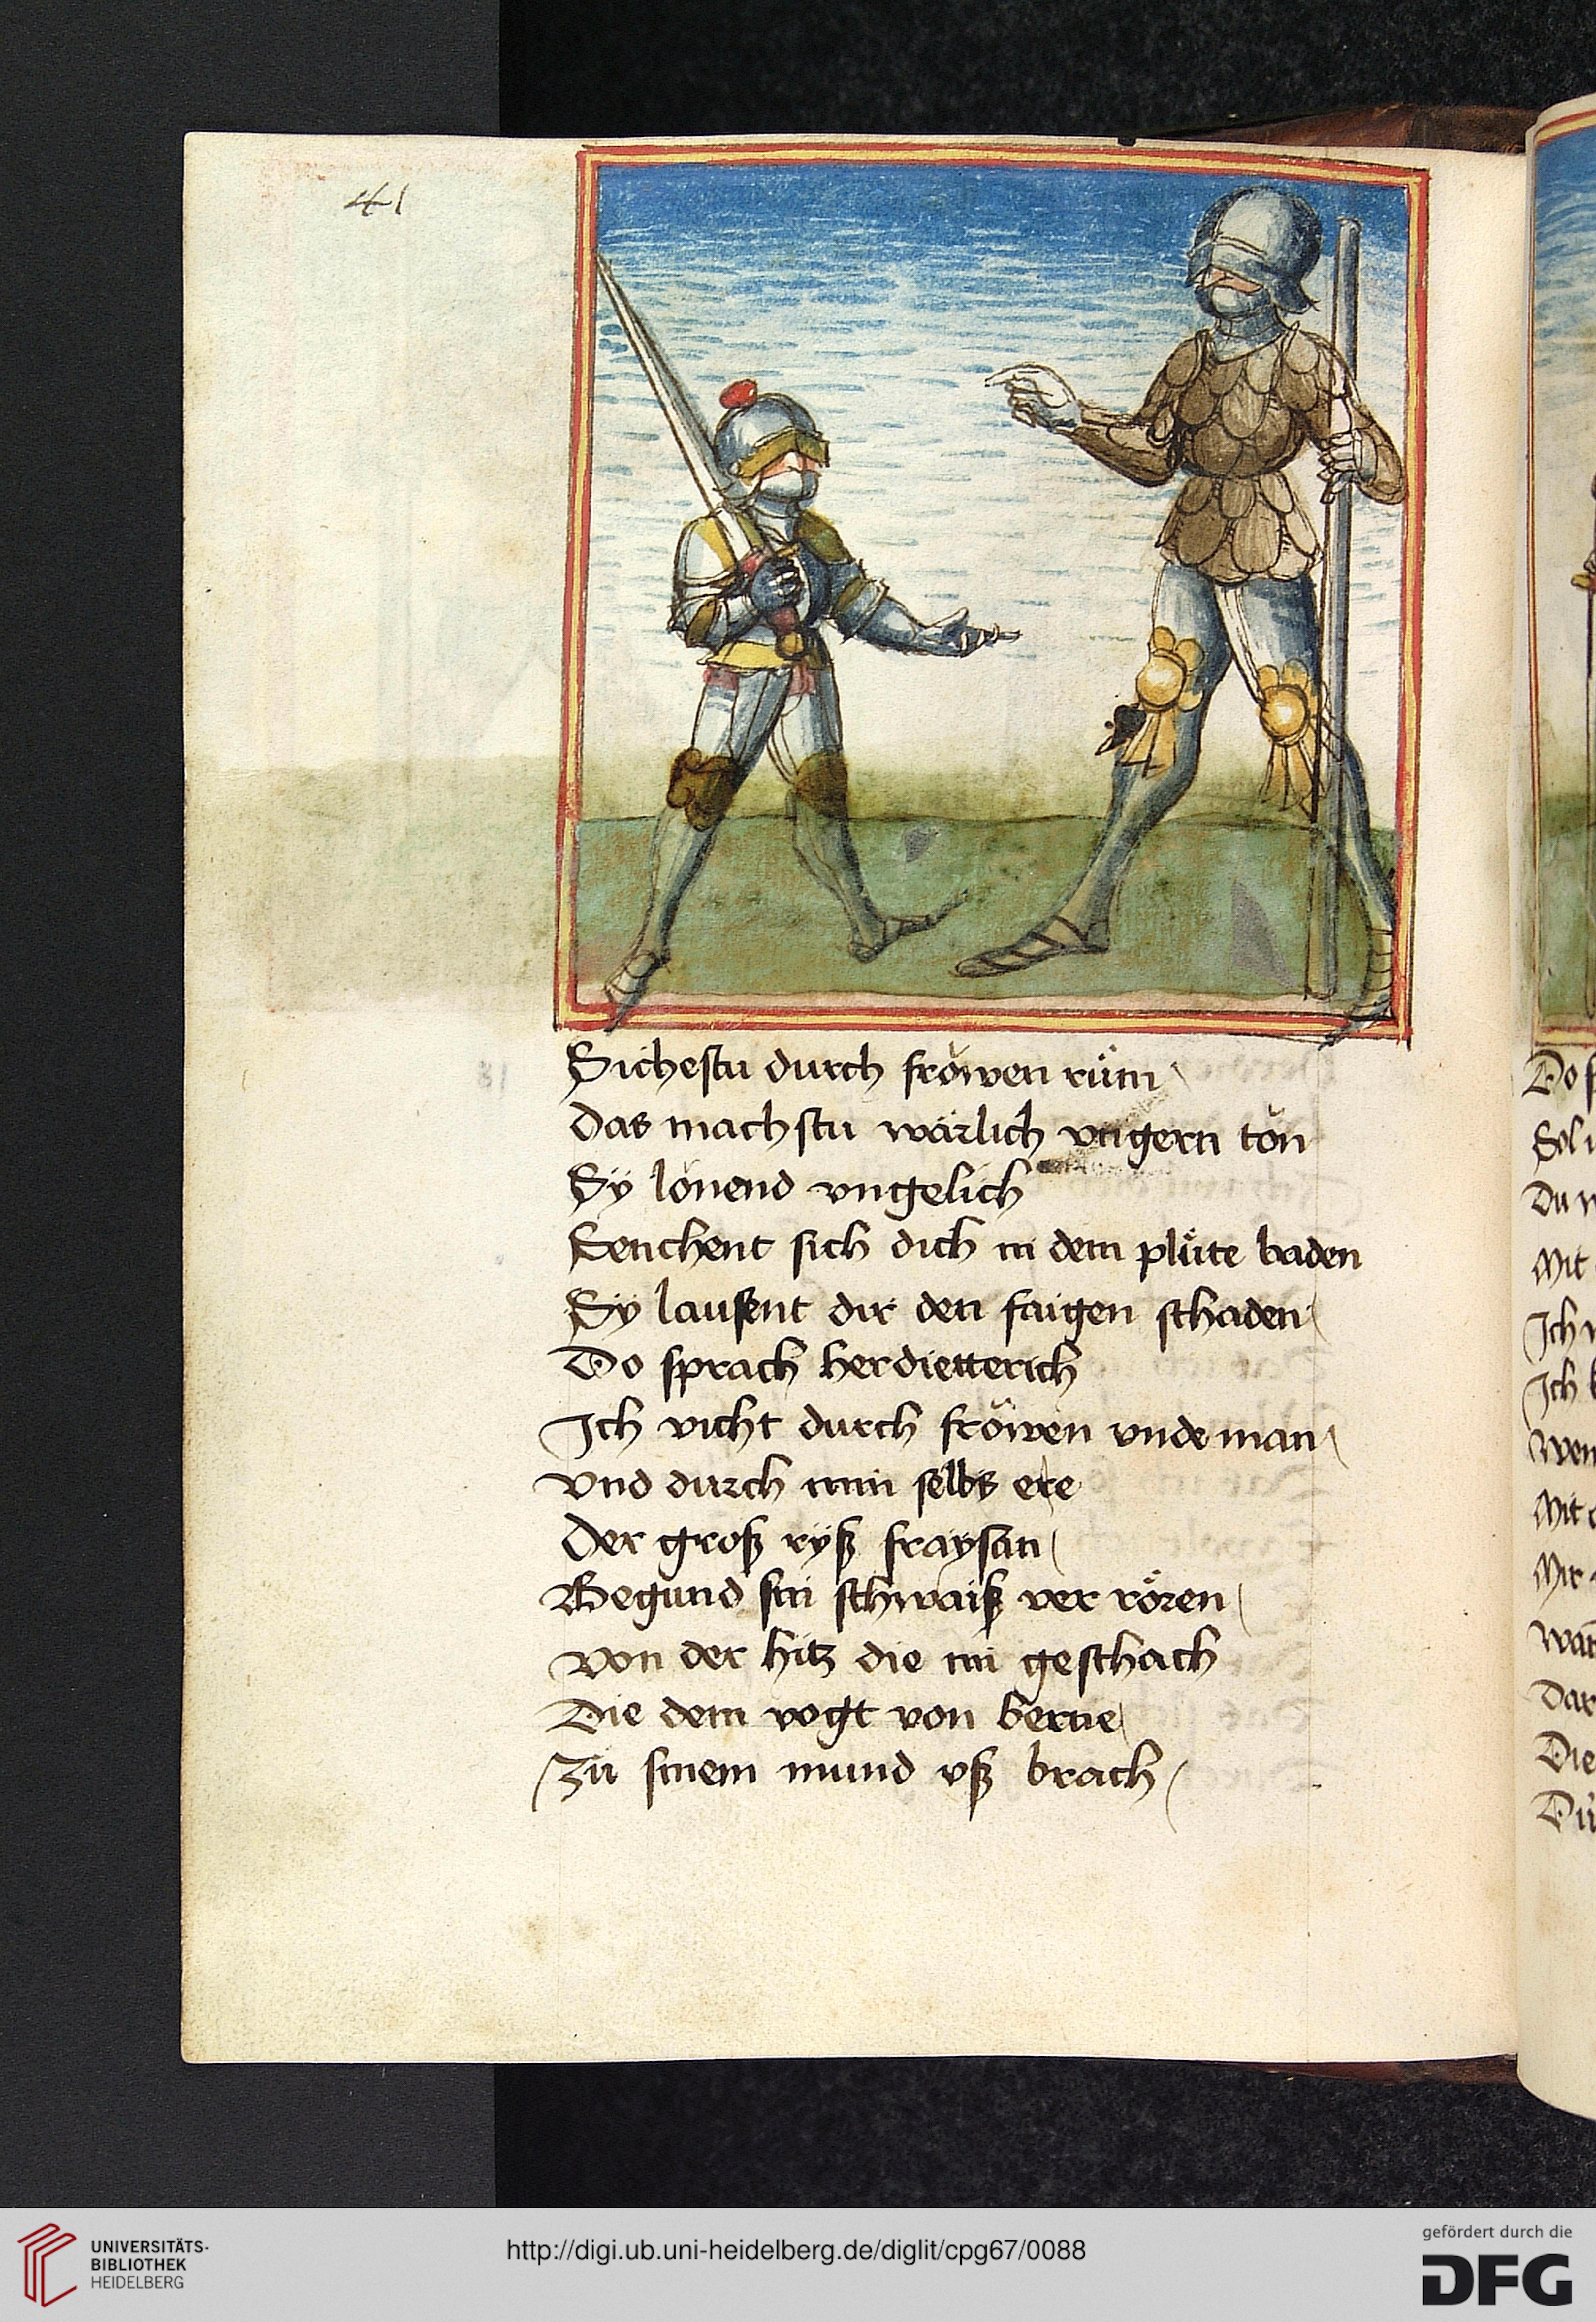 41
Sichestu durch fröwen rům
das machstu wärlich vngern tön
Sy lonend vngelich
Senchent sich dich in dem plůte baden
Sy laussent dir den faigen schaden
Do sprach herdietterich
Ich vicht durch fröwen vnde man
vnd durch min selbs ere
der groß ryß fraysan
Begund sin schwaiß ver rören
von der hitz die im geschach
Die dem vogt von berne
Zů sinem mund vß brach
Do
Sol
Du
Mit
Ich
Ich
wen
Mit
Mir
Dar
Die
UNIVERSITÄTS-
BIBLIOTHEK
HEIDELBERG
http://digi.ub.uni-heidelberg.de/diglit/cpg67/0088
gefördert durch die
DFG